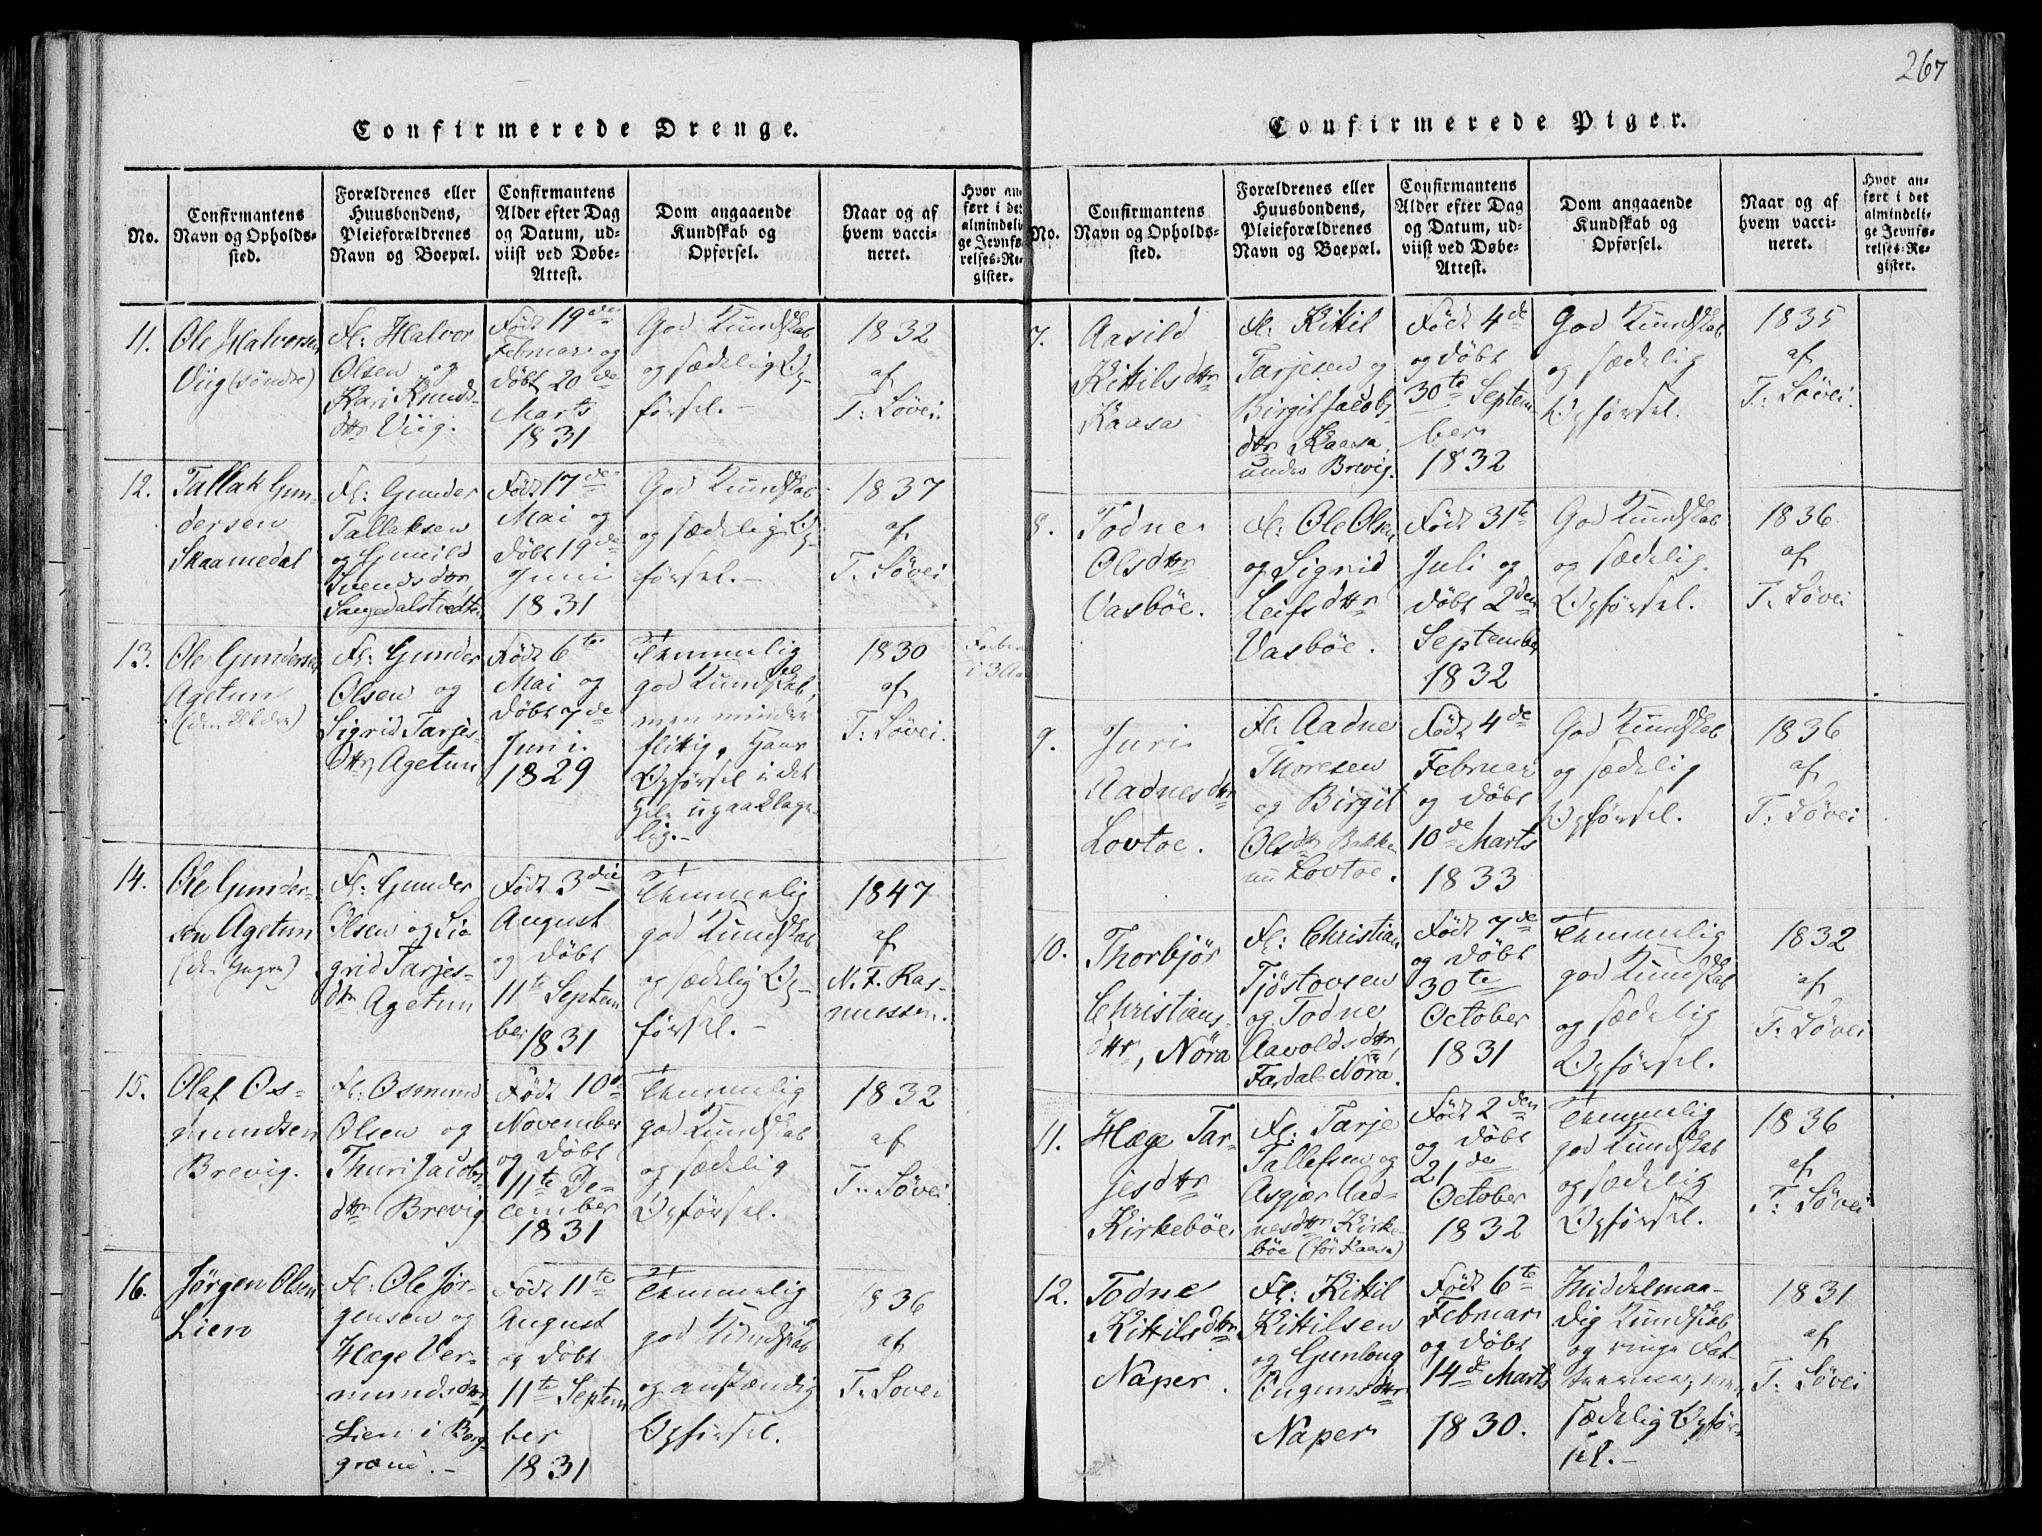 267
Confirmerede Drenge.
No.
Confirmantens
Navn og Opholds-
sted.
Forældrenes eller
Huusbondens,
Pleieforældrenes
Navn og Boepæl.
Confirmantens
Alder efter Dag
og Datum, ud-
viist ved Døbe-
Attest.
Dom angaaende
Kundskab og
Opførsel.
Naar og af
hvem vacci-
neret.
Hvor an-
ført i det
almindeli-
ge Jevnfø-
relses-Re-
gister.
11.
Ole Halvorsen
Viig (søndre)
Fl: Halvor
Olsen og
Kari Knuds-
dtr Viig.
Født 19de
Februar og
døbt 20de
Marts
1831
God Kundskab
og sædelig Op-
førsel.-
1832
af
T. Løvei.
12.
Tallak Gun-
dersen
Skaamedal
Fl: Gunder
Tallaksen
og Gunild
Svendsdtr
Født 17de
Mai og
døbt 19de
Juni
1831
God Kundskab
og sædelig Op-
førsel.-
1837
af
T. Løvei
13.
Ole Gundersen
Agetun
(den Ældre)
Fl: Gunder
Olsen og
Sigrid Tarjes-
dtr, Agetun
Født 6te
Mai og
døbt 7de
Juni
1829
Temmelig
god Kundskab,
men mindre
flittig, Hans
Opførsel i det
Hele upaaklage-
lig.-
1830
af
T. Løvei.
14.
Ole Gunder-
sen Agetun
(den Yngre)
Fl: Gunder
Olsen og Si-
grid Tarjes-
dtr Agetun
Født 3die
August
og døbt
11te Septem
ber 1831
Temmelig
god Kundskab
og sædelig Op-
førsel.-
1847
af
N. F. Ras-
mussen.
15.
Olaf Os-
mundsen
Brevig.
Fl: Osmund
Olsen og
Thuri Jacobs-
dtr Brevig
Født 10de
November
og døbt
11te De-
cember
1831
Temmelig
god Kundskab
og sædelig
Opførsel.
1832
af
T. Løvei
16.
Jørgen Olsen
Lien
Fl: Ole Jør-
gensen og
Hæge Ver-
mundsdtr,
Lien i Borg-
Født 11te
August
og døbt
11te Septem
ber
1831
Temmelig
god Kundskab
og anstændig
Opførsel.
1836
af
T. Løvei
Confirmerede Piger.
No.
Confirmantens
Navn og Opholds-
sted.
Forældrenes eller
Huusbondens,
Pleieforældrenes
Navn og Boepæl.
Confirmantens
Alder efter Dag
og Datum, ud-
viist ved Døbe-
Attest.
Dom angaaende
Kundskab og
Opførsel.
Naar og af
hvem vacci-
neret.
Hvor an-
ført i det
almindeli-
ge Jevnfø-
relses-Re-
gister.
7.
Aasild
Kittilsdtr
Kaasa
Fl. Kittil
Tarjesen og
Birgit Jacobs-
dtr Kaasa
under Brevig.
Født 4de
og døbt
30te Septem-
ber
1832
God Kundskab
og sædelig
Opførsel.
1835
af
T. Løvei.
8.
Todne
Olsdtr
Vasbøe.
Fl. Ole Olsen
og Sigrid
Leifsdtr
Vasbøe.
Født 31te
Juli og
døbt 2den
September
1832
God Kundskab
og sædelig
Opførsel.
1836
af
T. Løvei
9.
Juri
Aadnesdtr
Lovtoe.
Fl. Aadne
Thoresen
og Birgit
Olsdtr Bakken
nu Lovtoe.
Født 4de
Februar
og døbt
10de Marts
1833
God Kundskab
og sædelig
Opførsel.
1836
af
T. Løvei
10.
Thorbjør
Christians-
dtr, Nöra
Fl: Christian
Tjöstovsen
og Todne
Aavoldsdtr,
Fardal-Nöra.
Født 7de
og døbt
30te
October
1831
Temmelig
god Kundskab
og sædelig
Opførsel.
1832
af
T. Løvei
11.
Hæge Tar-
jesdtr
Kirkebøe
Fl. Tarje
Tallefsen og
Asgjær Aad-
nesdtr Kirke-
bøe (før Kaasa)
Født 2den
og døbt
21de
October
1832
Temmelig
god Kundskab
og sædelig
Opførsel.
1836
af
T. Løvei
12.
Todne
Kittilsdtr
Naper.
Fl: Kittil
Kittilsen
og Gunloug
Naper
Født 6te
Februar
og døbt
14de Marts
1830.
Middelmaa-
dig Kundskab
og ringe Fat-
sædelig Opfør-
sel.-
1831
af
T. Løvei